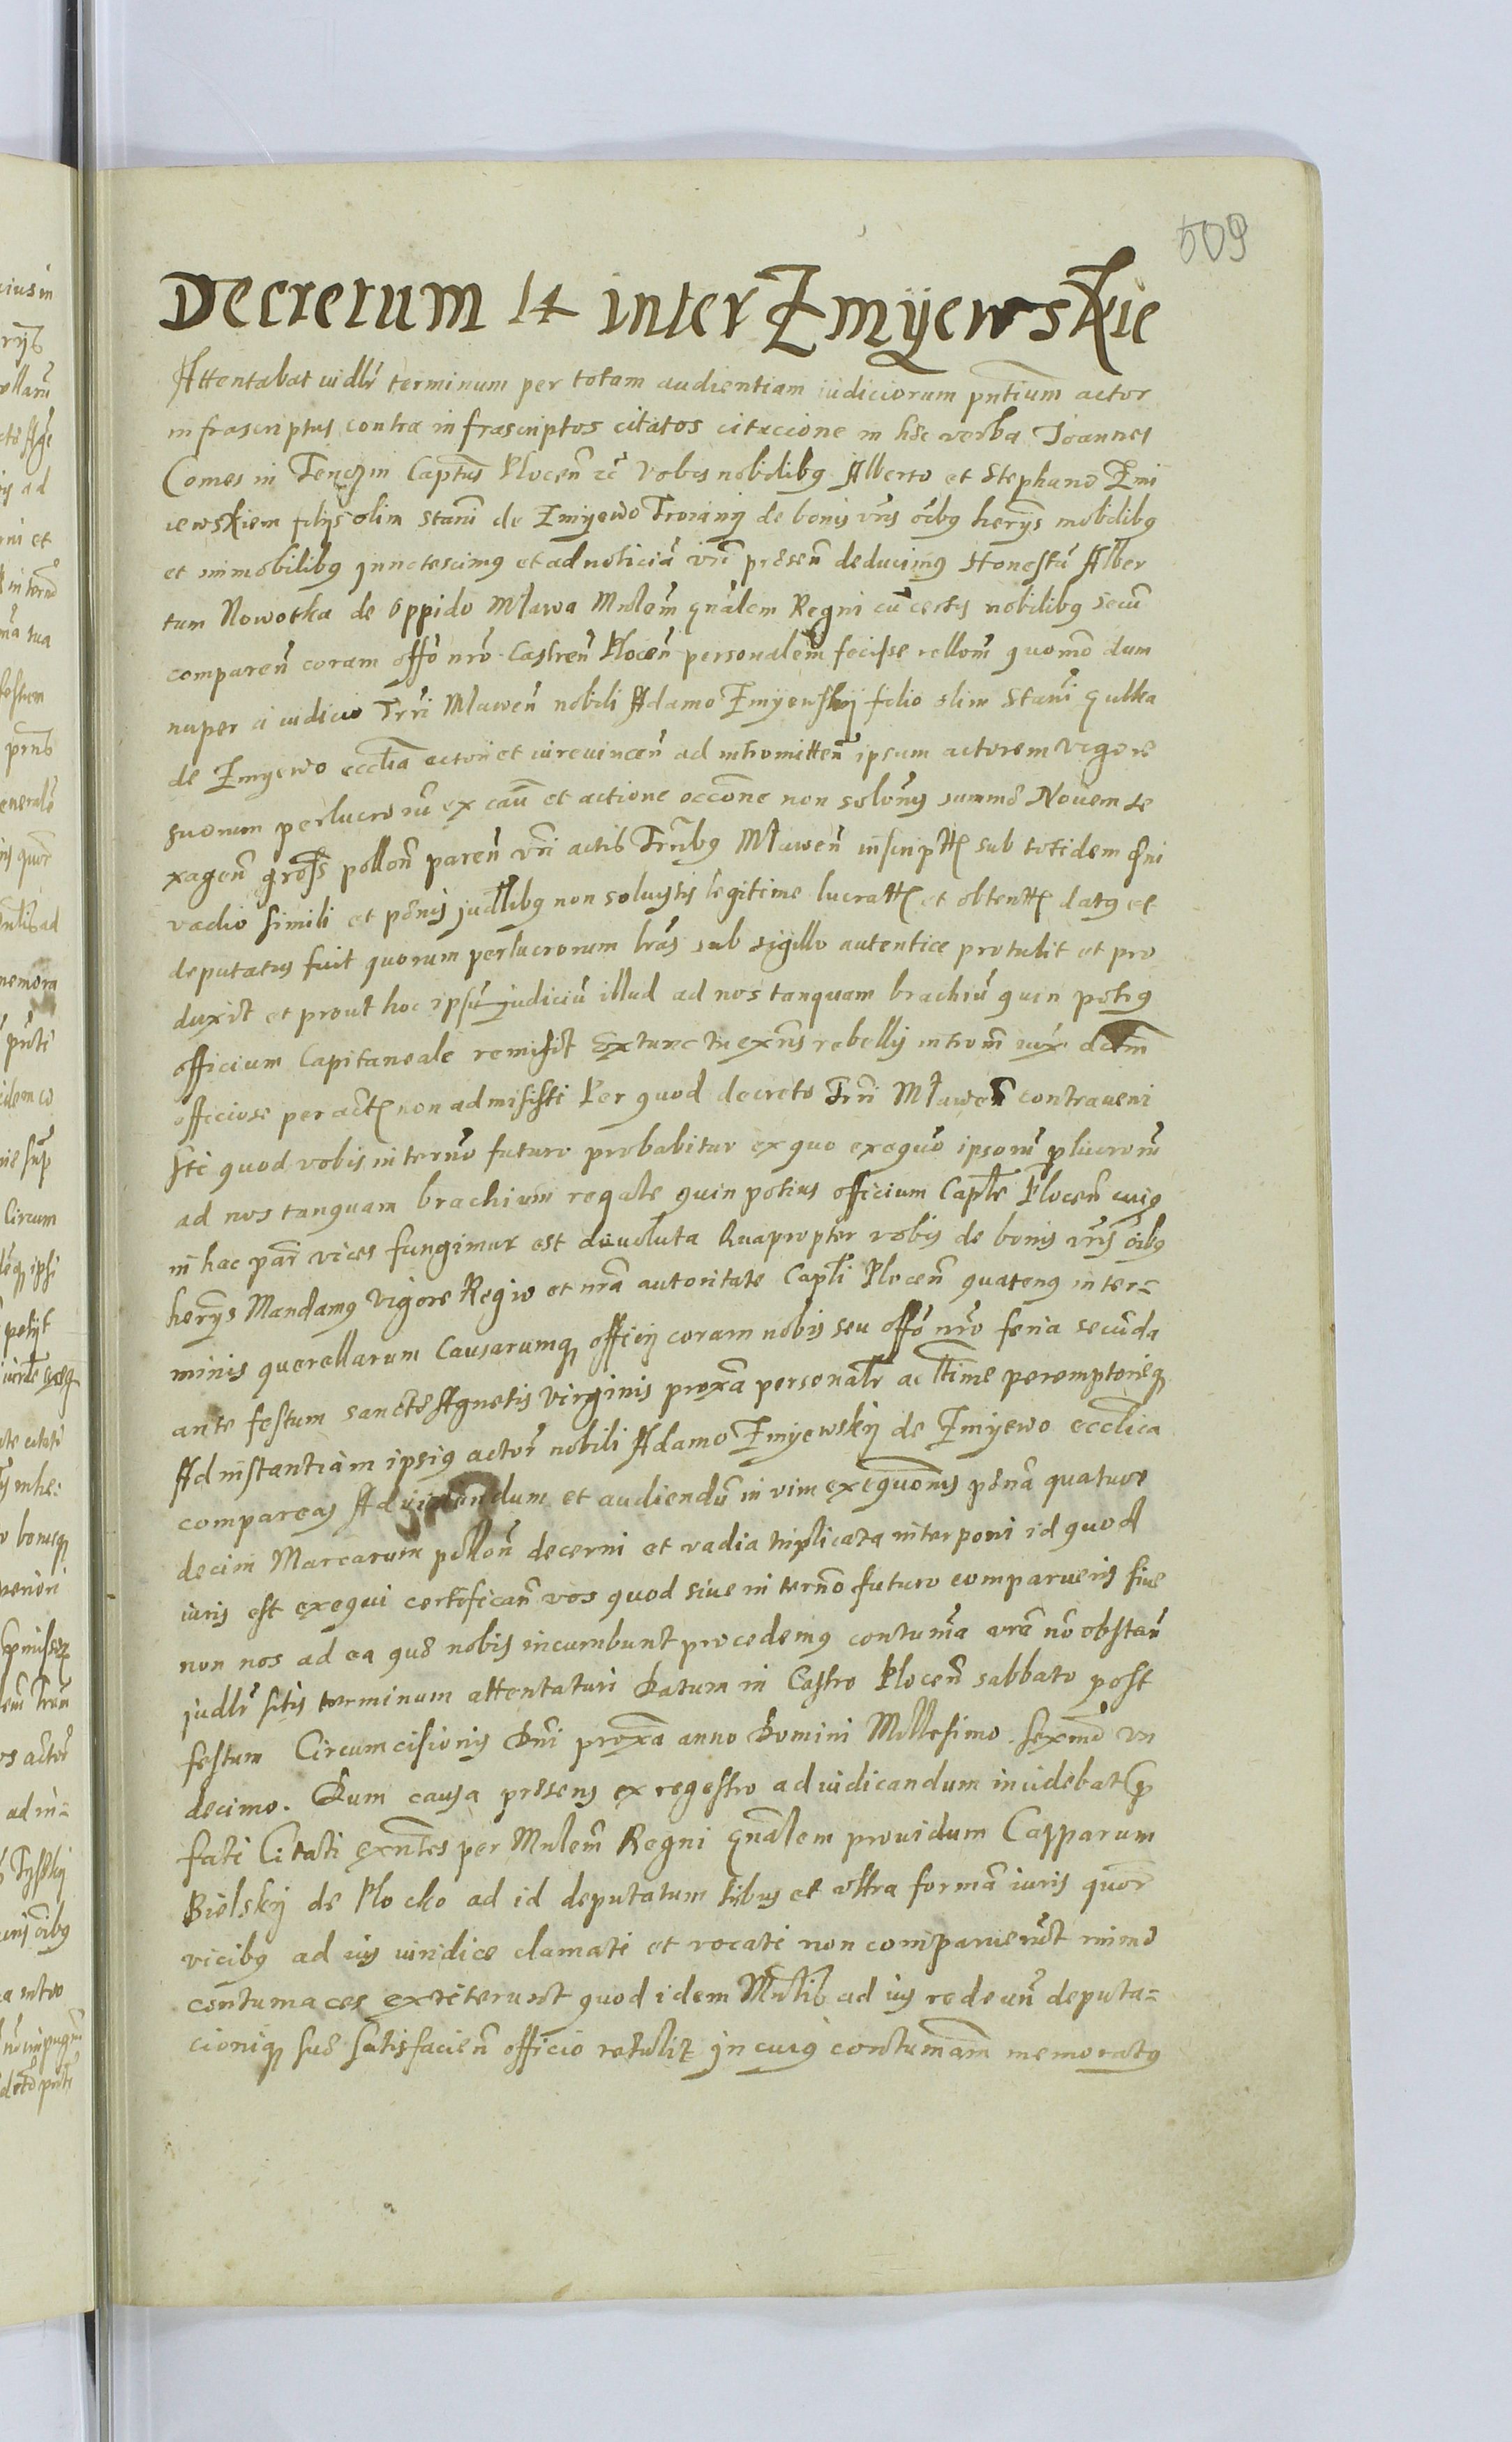 509
Decretum 14 inter Zmÿewskie
Attentabat iudlr terminum per totam audientiam iudiciorum pntium actor
infrascriptus contra infrascriptos citatos citacione in hęc verba Joannes
Comes in Tenczin Captus Plocen etc Vobis nobilibus Alberto et Stephano Zmi
iewskiem filijs olim Stani de Zmijewo Troianij de bonis vris oibus herijs mobilibus
et immobilibus innotescimus et ad noticia vri presen deducimus Honestu Alber
tum Nowotka de oppido Mlawa Mnlem gnalem Regni cu certis nobilibus secu
comparen coram offo nro Castren Plocen personalem fecisse rellom quomo dum
nuper a iudicio Trri Mlawen nobili Adamo Zmijewskij filio olim Stani Gulka
de Zmyewo ecclia actori et iurevincen ad intromitten ipsum actorem vigore
suorum perlucroru ex cau et actione occone non solonis summę Novem se
xagen gross pollon paren vri actis Trribus Mlawen inscriptę sub totidem qni
vadio simili et pęnis judlibus non soluistis legitime lucratę et obtentę datus et
deputatus fuit quorum perlucrorum lras sub sigillo autentice protulit et pro
duxit et prout hoc ipsu judiciu illud ad nos tanquam brachiu quin potius
officium Capitaneale remisit Extunc tu exns rebellis introm iux dctm
officiose peractę non admisisti Per quod decreto Trri Mlawen contraueni
sti quod vobis in termo futuro probabitur ex quo exequo ipsoru plucroru
ad nos tanquam brachium regale quin potius officium Caple Plocen cuius
in hac par vices fungimur est deuoluta Quapropter vobis de bonis vris oibus
herijs Mandamus Vigore Regio et nra autoritate Capli Plocen quatenus in ter-
minis querellarum Causarumque officij coram nobis seu offo nro feria secunda
ante festum sanctę Agnetis Virginis proxa personalr ac lltime peremptorieque
Ad instantiam ipsius actor nobili Adamo Zmijewskij de Zmijewo ecclica
compareas Ad videndum et audiendu in vim exequonis pęna quatuor
decim Marcarum pollon decerni et vadia triplicata interponi id quod
iuris est exequi certifican vos quod siue in termo futuro comparueris siue
non nos ad ea quę nobis incumbunt procedemus contuma vra no obstan
judlr sitis terminum attentaturi Datum in Castro Plocen sabbato post
festum Circumcisionis Dni proxa anno Domini Millesimo sexmo vn
decimo. Dum causa pręsens ex regestro ad iudicandum incidebat p
fati Citati exntes per Mnlem Regni gnalem prouidum Casparum
Bielskij de Plocko ad id deputatum tribus et vltra forma iuris quor
vicibus ad ius iuridice clamati et vocati non comparuerut nimo
contumaces extiterunt quod idem Mnlis ad ius redeun deputa-
cionique suę satisfacien officio retulit in cuius contumam memoratus